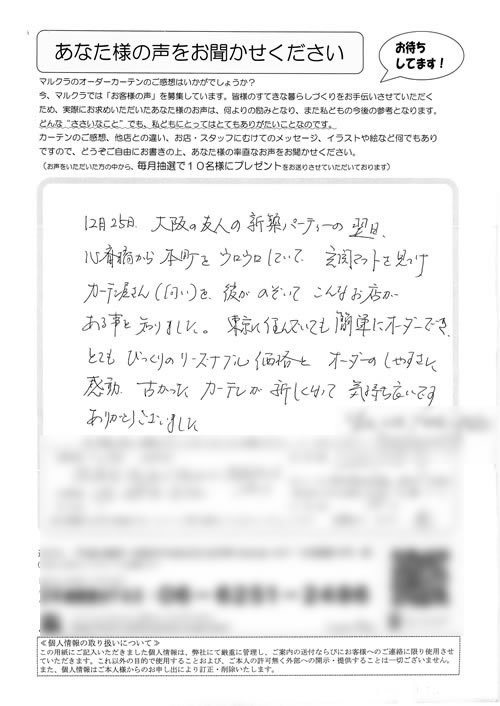 あなた様の声をお聞かせください
お待ち
してます！
マルクラのオーダーカーテンのご感想はいかがでしょうか？
今、マルクラでは「お客様の声」を募集しています。皆様のすてきな暮らしづくりをお手伝いさせていただく
ため、実際にお求めいただいたあなた様のお声は、何よりの励みとなり、また私どもの今後の参考となります。
どんな“ささいなこと”でも、私どもにとってはとてもありがたいことなのです。
カーテンのご感想、他店との違い、お店・スタッフにむけてのメッセージ、イラストや絵など何でもあり
ですので、どうぞご自由にお書きの上、あなた様の率直なお声をお聞かせください。
（お声をいただいた方の中から、毎月抽選で１０名様にプレゼントをお送りさせていただいております）
12月25日. 大阪の友人の新築パーティーの翌日、
心斎橋から本町をウロウロしていて、玄関マットを見つけ
カーテン屋さん(向い)を、彼が のぞいて こんなお店が
ある事を知りました。東京に住んでいても簡単にオーダーでき、
とても びっくりのリーズナブル価格と オーダーのしやすさに
感動. 古かった カーテンが 新しくなって 気持ち良いです
ありがとうございました
06-6251-2486
≪個人情報の取り扱いについて≫
この用紙にご記入いただきました個人情報は、弊社にて厳重に管理し、ご案内の送付ならびにお客様へのご連絡に限り使用させ
ていただきます。これ以外の目的で使用することおよび、ご本人の許可無く外部への開示・提供することは一切ございません。
また、個人情報はご本人様からのお申し出により訂正・削除いたします。